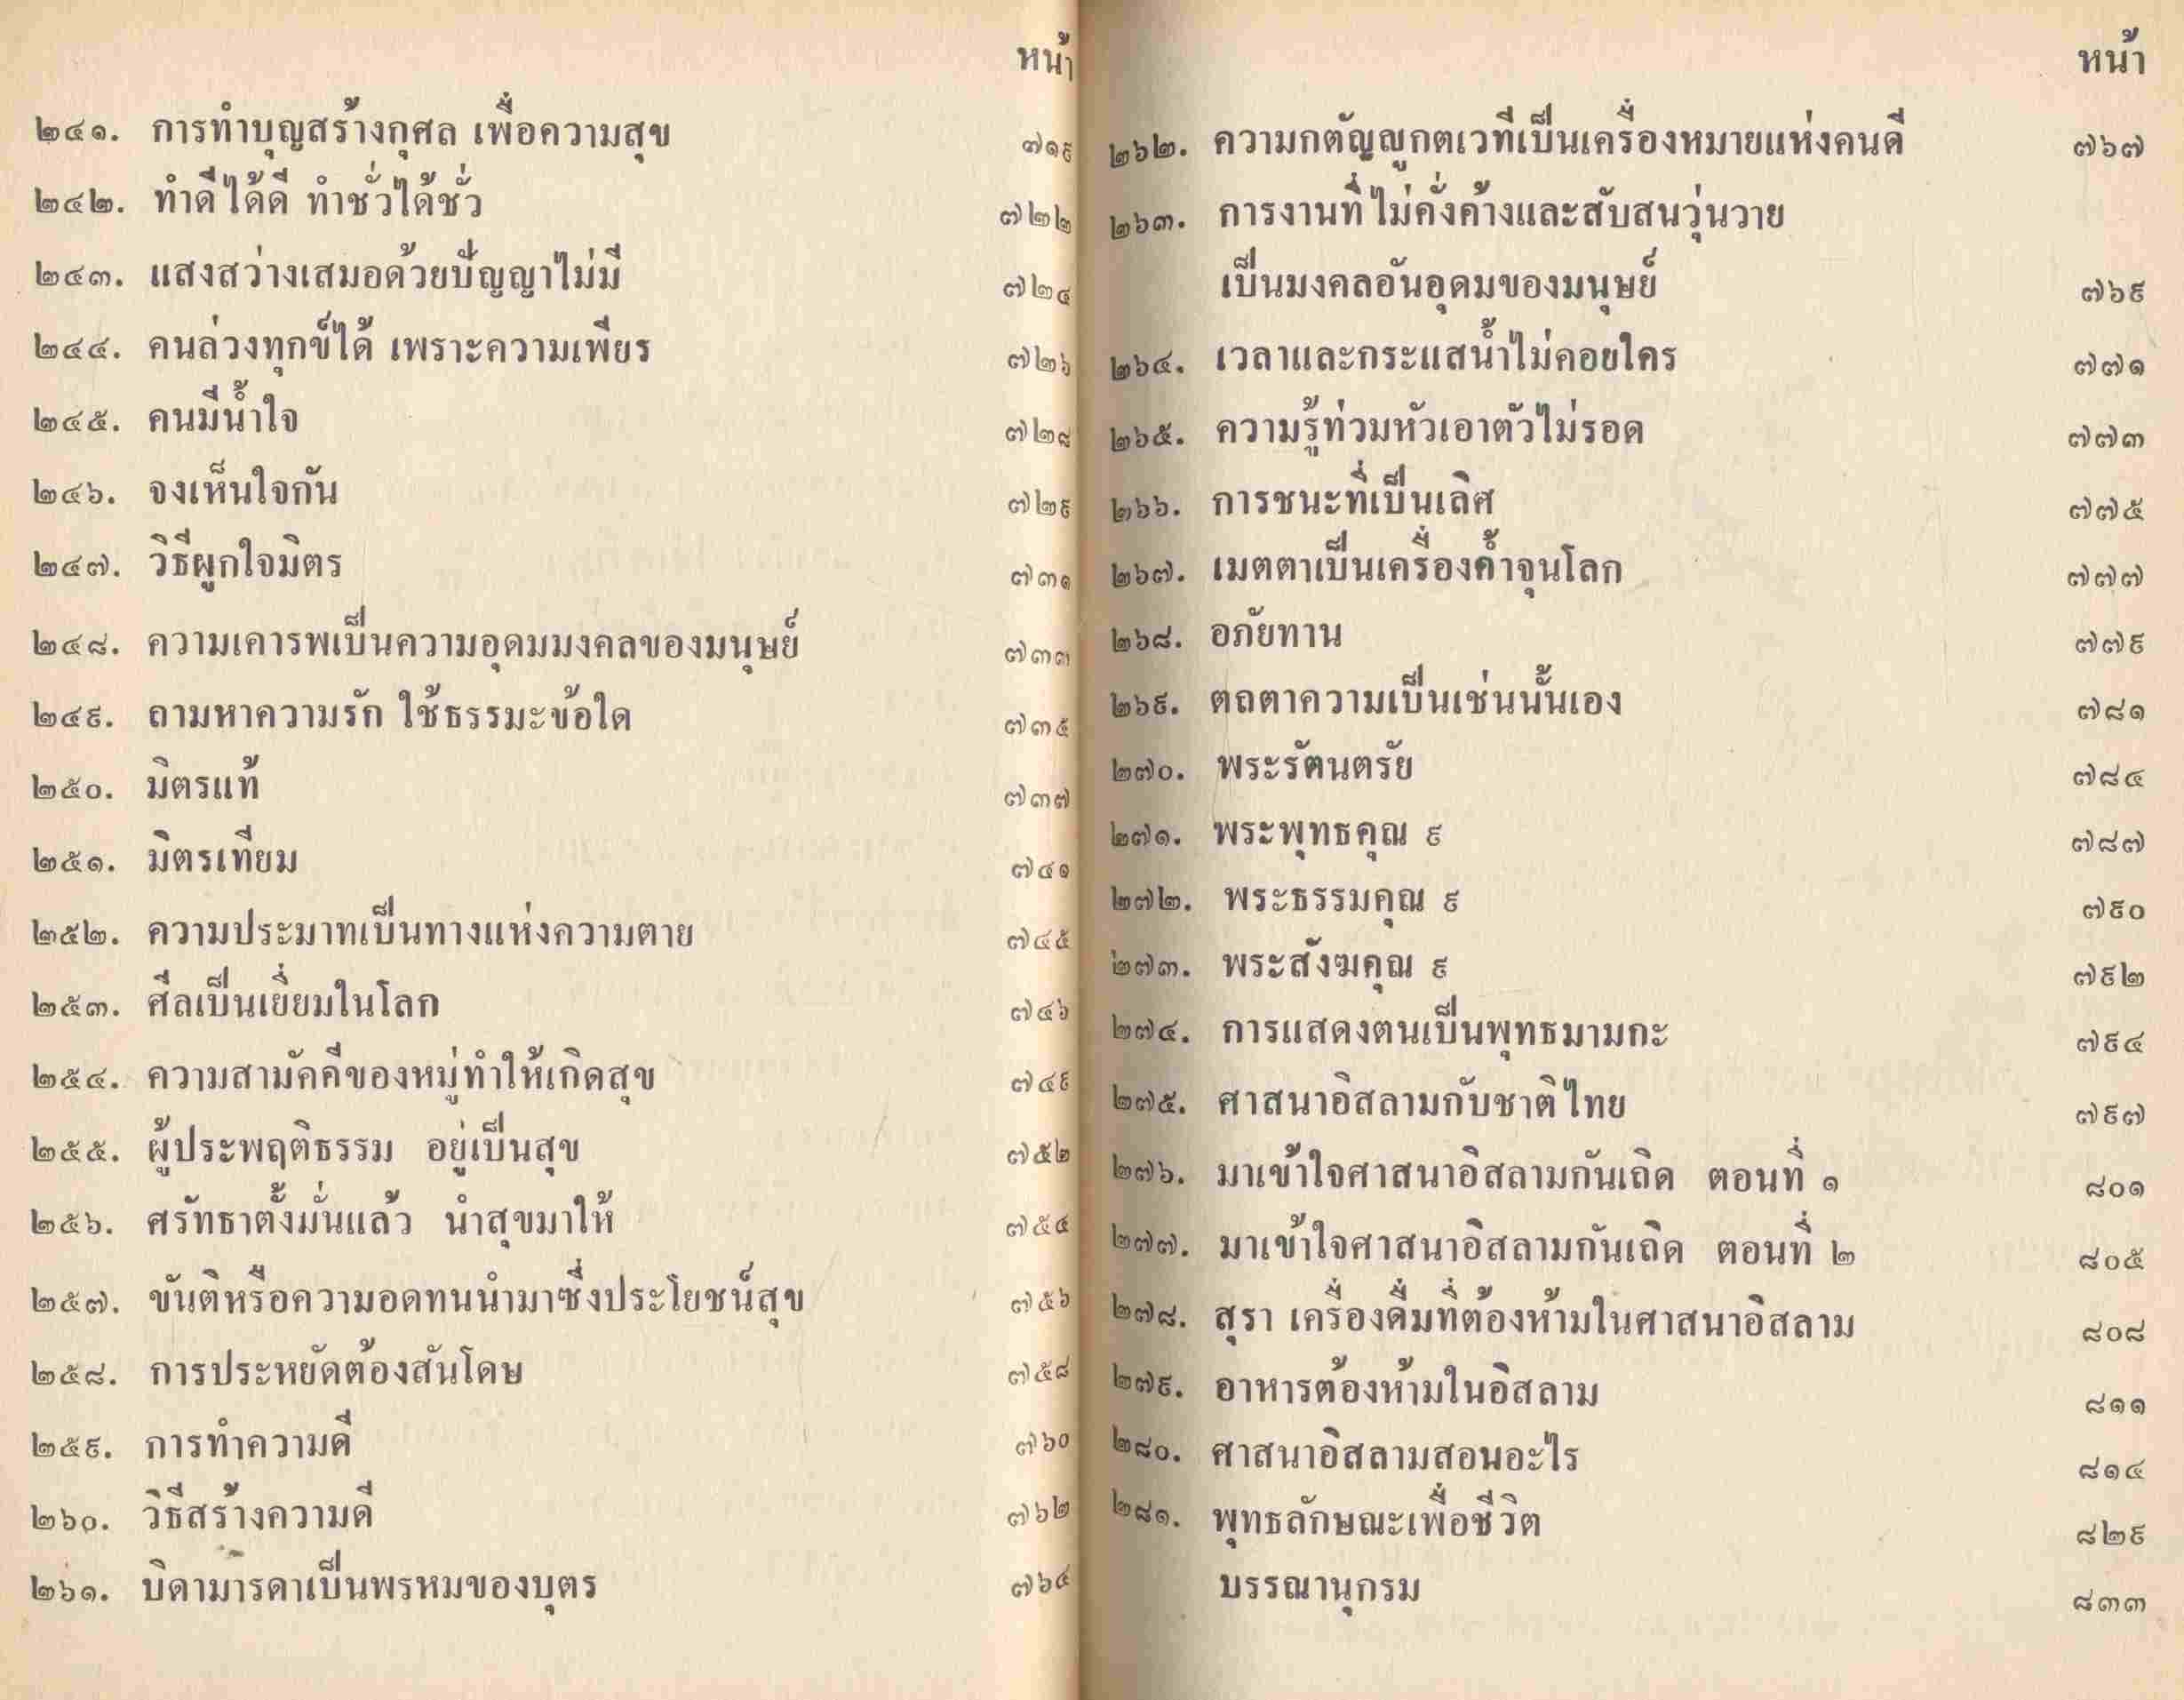 หน้า
๒๔๑. การทำบุญสร้างกุศล เพื่อความสุข ๗๑๙
๒๔๒. ทำดีได้ดี ทำชั่วได้ชั่ว ๗๒๒
๒๔๓. แสงสว่างเสมอด้วยปัญญาไม่มี ๗๒๔
๒๔๔. คนล่วงทุกข์ได้ เพราะความเพียร ๗๒๖
๒๔๕. คนมีน้ำใจ ๗๒๘
๒๔๖. จงเห็นใจกัน ๗๒๙
๒๔๗. วิธีผูกใจมิตร ๗๓๑
๒๔๘. ความเคารพเป็นความอุดมมงคลของมนุษย์ ๗๓๓
๒๔๙. ถามหาความรัก ใช้ธรรมะข้อใด ๗๓๕
๒๕๐. มิตรแท้ ๗๓๗
๒๕๑. มิตรเทียม ๗๔๑
๒๕๒. ความประมาทเป็นทางแห่งความตาย ๗๔๕
๒๕๓. ศีลเป็นเยี่ยมในโลก ๗๔๖
๒๕๔. ความสามัคคีของหมู่ทำให้เกิดสุข ๗๔๙
๒๕๕. ผู้ประพฤติธรรม อยู่เป็นสุข ๗๕๒
๒๕๖. ศรัทธาตั้งมั่นแล้ว นำสุขมาให้ ๗๕๔
๒๕๗. ขันติหรือความอดทนนำมาซึ่งประโยชน์สุข ๗๕๖
๒๕๘. การประหยัดต้องสันโดษ ๗๕๘
๒๕๙. การทำความดี ๗๖๐
๒๖๐. วิธีสร้างความดี ๗๖๒
๒๖๑. บิดามารดาเป็นพรหมของบุตร ๗๖๔
หน้า
๒๖๒. ความกตัญญูกตเวทีเป็นเครื่องหมายแห่งคนดี ๗๖๗
๒๖๓. การงานที่ไม่คั่งค้างและสับสนวุ่นวาย
เป็นมงคลอันอุดมของมนุษย์ ๗๖๙
๒๖๔. เวลาและกระแสน้ำไม่คอยใคร ๗๗๑
๒๖๕. ความรู้ท่วมหัวเอาตัวไม่รอด ๗๗๓
๒๖๖. การชนะที่เป็นเลิศ ๗๗๕
๒๖๗. เมตตาเป็นเครื่องค้ำจุนโลก ๗๗๗
๒๖๘. อภัยทาน ๗๗๙
๒๖๙. ตถตาความเป็นเช่นนั้นเอง ๗๘๑
๒๗๐. พระรัตนตรัย ๗๘๔
๒๗๑. พระพุทธคุณ ๙ ๗๘๗
๒๗๒. พระธรรมคุณ ๙ ๗๙๐
๒๗๓. พระสังฆคุณ ๙ ๗๙๒
๒๗๔. การแสดงตนเป็นพุทธมามกะ ๗๙๔
๒๗๕. ศาสนาอิสลามกับชาติไทย ๗๙๗
๒๗๖. มาเข้าใจศาสนาอิสลามกันเถิด ตอนที่ ๑ ๘๐๑
๒๗๗. มาเข้าใจศาสนาอิสลามกันเถิด ตอนที่ ๒ ๘๐๕
๒๗๘. สุรา เครื่องดื่มที่ต้องห้ามในศาสนาอิสลาม ๘๐๘
๒๗๙. อาหารต้องห้ามในอิสลาม ๘๑๑
๒๘๐. ศาสนาอิสลามสอนอะไร ๘๑๔
๒๘๑. พุทธลักษณะเพื่อชีวิต ๘๒๙
บรรณานุกรม ๘๓๓